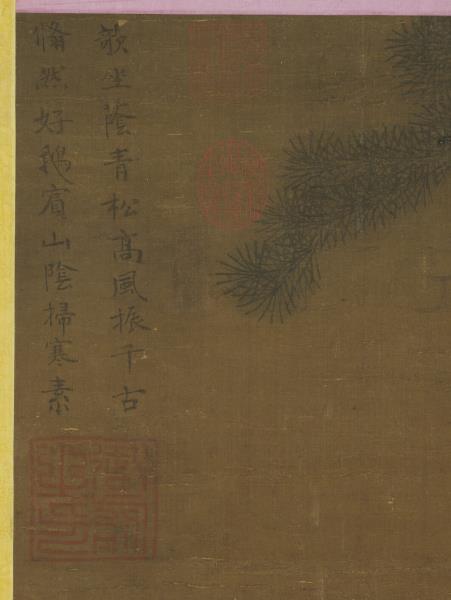 欹坐蔭青松高風振千古
翛然好鵝賓山陰掃寒素